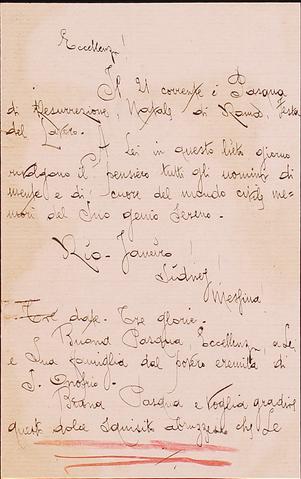 Eccellenza!
Il 21 corrente è Pasqua
di Resurrezione, Natale di Roma, Festa
del Lavoro.
A Lei in questo lieto giorno
rivolgono il pensiero tutti gli uomini di
mente e di cuore del mondo civile me-
mori del Suo genio sereno.
Rio-Janeiro!
Sidney!
Messina!
Tre date. Tre glorie.
Buona Pasqua, Eccellenza, a Lei
e Sua famiglia dal povero eremita di
S. Onofrio.
Buona Pasqua e voglia gradire
questo dolce squisito abruzzese che Le